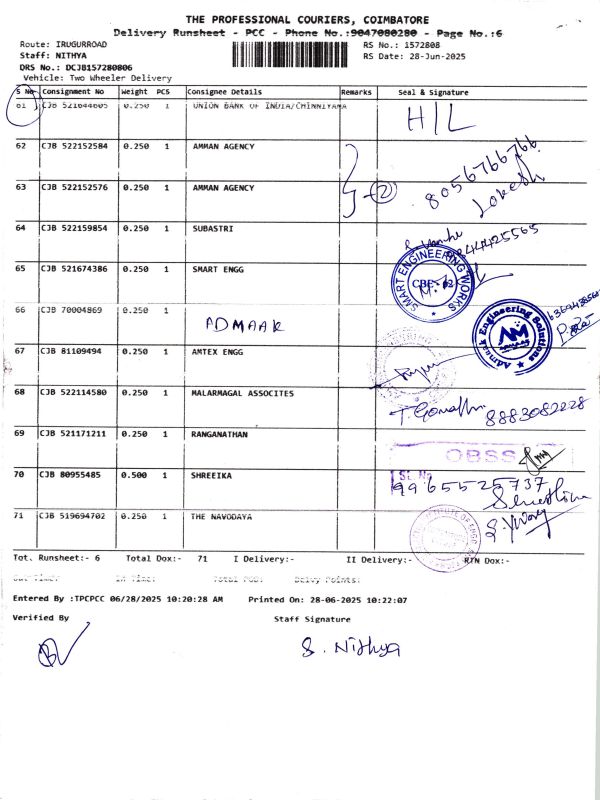 THE PROFESSIONAL COURIERS, COIMBATORE
Delivery Runsheet - PCC - Phone No.:9047080280 - Page No.:6
Route: IRUGURROAD
RS No.: 1572808
Staff: NITHYA
RS Date: 28-Jun-2025
DRS No.: DCJB157280806
Vehicle: Two Wheeler Delivery
S No Consignment No Weight PCS Consignee Details Remarks Seal & Signature
61 CJB 521644605 0.250 1 UNION BANK OF INDIA/CHINNIYAMA H/L
62 CJB 522152584 0.250 1 AMMAN AGENCY
63 CJB 522152576 0.250 1 AMMAN AGENCY 2 8056766766
Lokesh
64 CJB 522159854 0.250 1 SUBASTRI
65 CJB 521674386 0.250 1 SMART ENGG
SMART ENGINEERING WORKS
CBE-62
66 CJB 70004869 0.250 1 ADMAAK
Admaak Engineering Solutions
67 CJB 81109494 0.250 1 AMTEX ENGG
68 CJB 522114580 0.250 1 MALARMAGAL ASSOCITES
8883082228
69 CJB 521171211 0.250 1 RANGANATHAN
OBSS
70 CJB 80955485 0.500 1 SHREEIKA 9965525737
71 CJB 519694702 0.250 1 THE NAVODAYA
Tot. Runsheet:- 6 Total Dox:- 71 I Delivery:- II Delivery:- RTN Dox:-
Out Time: In Time: Total POD: Delvy Points:
Entered By :TPCPCC 06/28/2025 10:20:28 AM Printed On: 28-06-2025 10:22:07
Verified By Staff Signature
S. Nithya